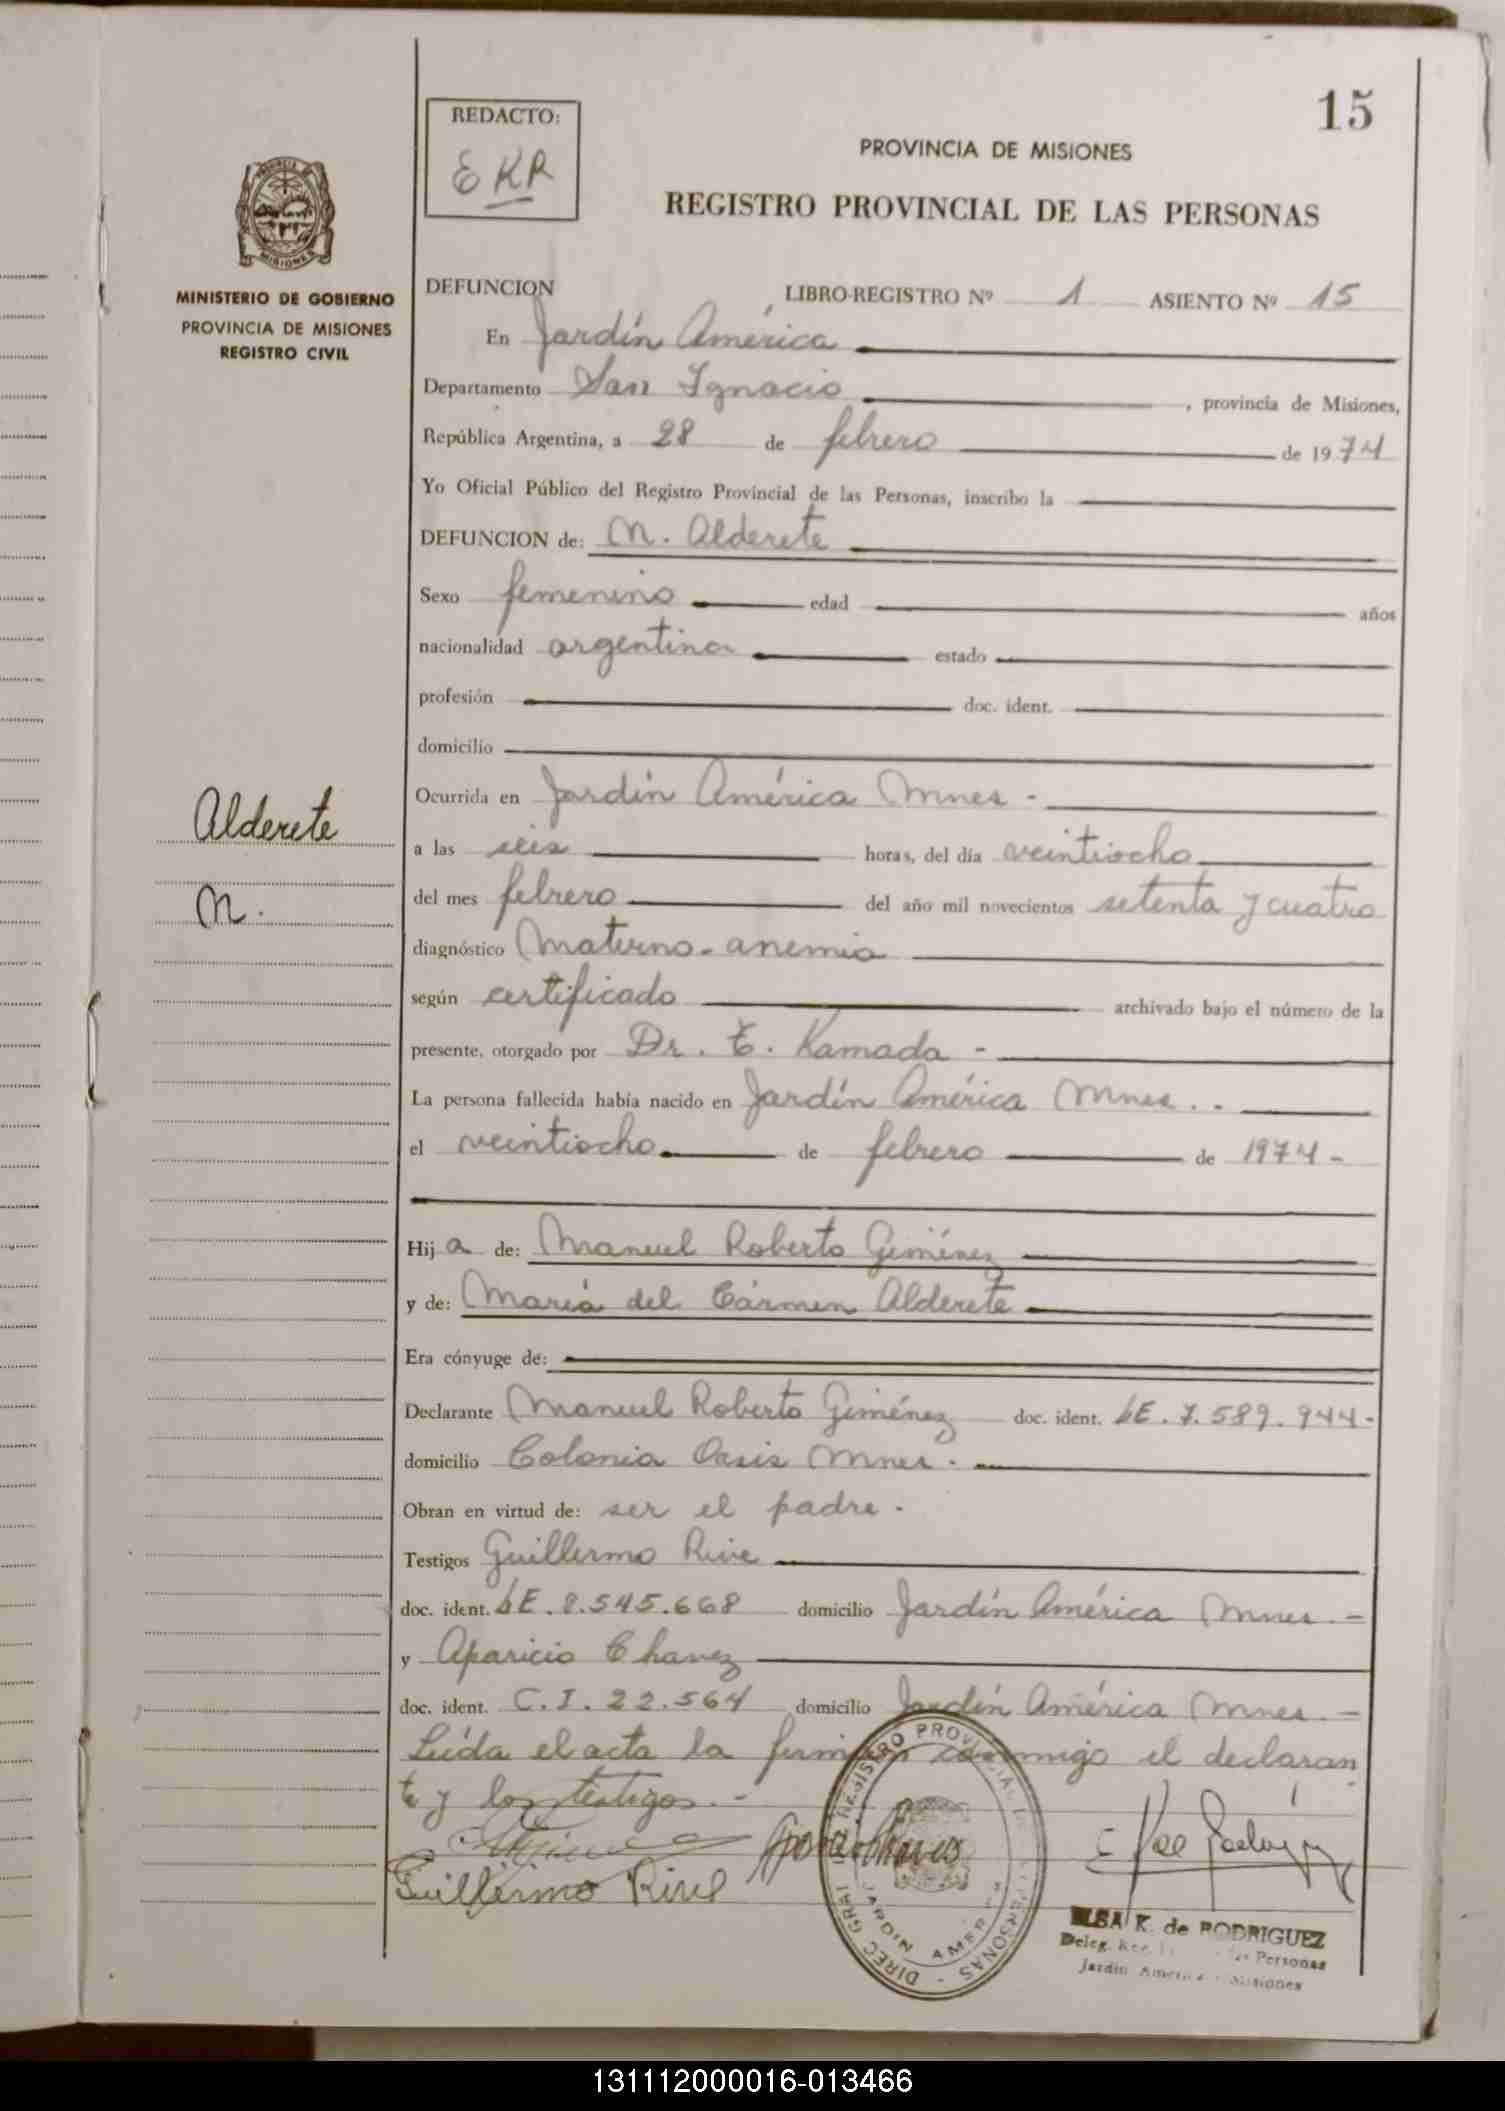 15
REDACTO:
EKR
PROVINCIA DE MISIONES
REGISTRO PROVINCIAL DE LAS PERSONAS
MINISTERIO DE GOBIERNO
PROVINCIA DE MISIONES
REGISTRO CIVIL
DEFUNCION LIBRO-REGISTRO Nº 1 ASIENTO Nº 15
En Jardín América
Departamento San Ignacio, provincia de Misiones,
República Argentina, a 28 de febrero de 1974
Yo Oficial Público del Registro Provincial de las Personas, inscribo la
DEFUNCION de: N. Alderete
Sexo femenino edad años
nacionalidad argentina estado
profesión doc. ident.
domicilio
Alderete
N.
Ocurrida en Jardín América Mnes -
a las seis horas, del día veintiocho
del mes febrero del año mil novecientos setenta y cuatro
diagnóstico Materno-anemia
según certificado archivado bajo el número de la
presente, otorgado por Dr. T. Kamada -
La persona fallecida había nacido en Jardín América Mnes. -
el veintiocho de febrero de 1974-
Hija de: Manuel Roberto Giménez
y de: María del Cármen Alderete
Era cónyuge de:
Declarante Manuel Roberto Giménez doc. ident. LE. 7.589.944-
domicilio Colonia Oasis Mnes.
Obran en virtud de: ser el padre.
Testigos Guillermo Rive
doc. ident. LE. 8.545.668 domicilio Jardín América Mnes. -
y Aparicio Chavez
doc. ident. C.I. 22.564 domicilio Jardín América Mnes. -
Leída el acta la firman conmigo el declaran
te y los testigos. -
Guillermo Rive
DIREC GRAL DEL REGISTRO PROVINCIAL DE LAS PERSONAS - JARDIN AMERICA
ELSA K. de RODRIGUEZ
Deleg. Personas
Jardín América - Misiones
131112000016-013466